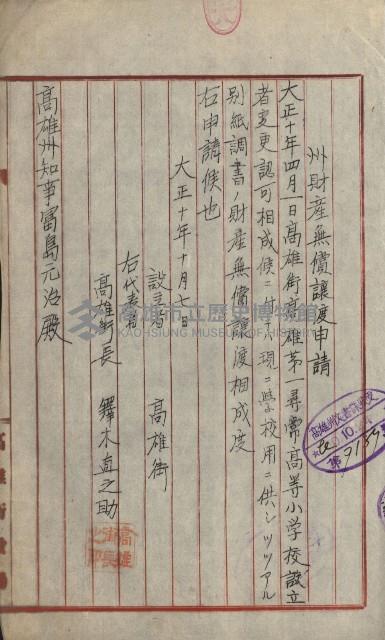 州財産無償讓渡申請
大正十年四月一日高雄街高雄第一尋常高等小学校設立
者変更認可相成候ニ付テハ現ニ学校用ニ供シツヽアル
別紙調書ノ財産無償讓渡相成度
右申請候也
大正十年十月七日
設立者 高雄街
右代表者
高雄街長 鐸木直之助
高雄街長之印
高雄州知事富島元治殿
高雄市立歷史博物館
KAOHSIUNG MUSEUM OF HISTORY
10.
高雄街役場